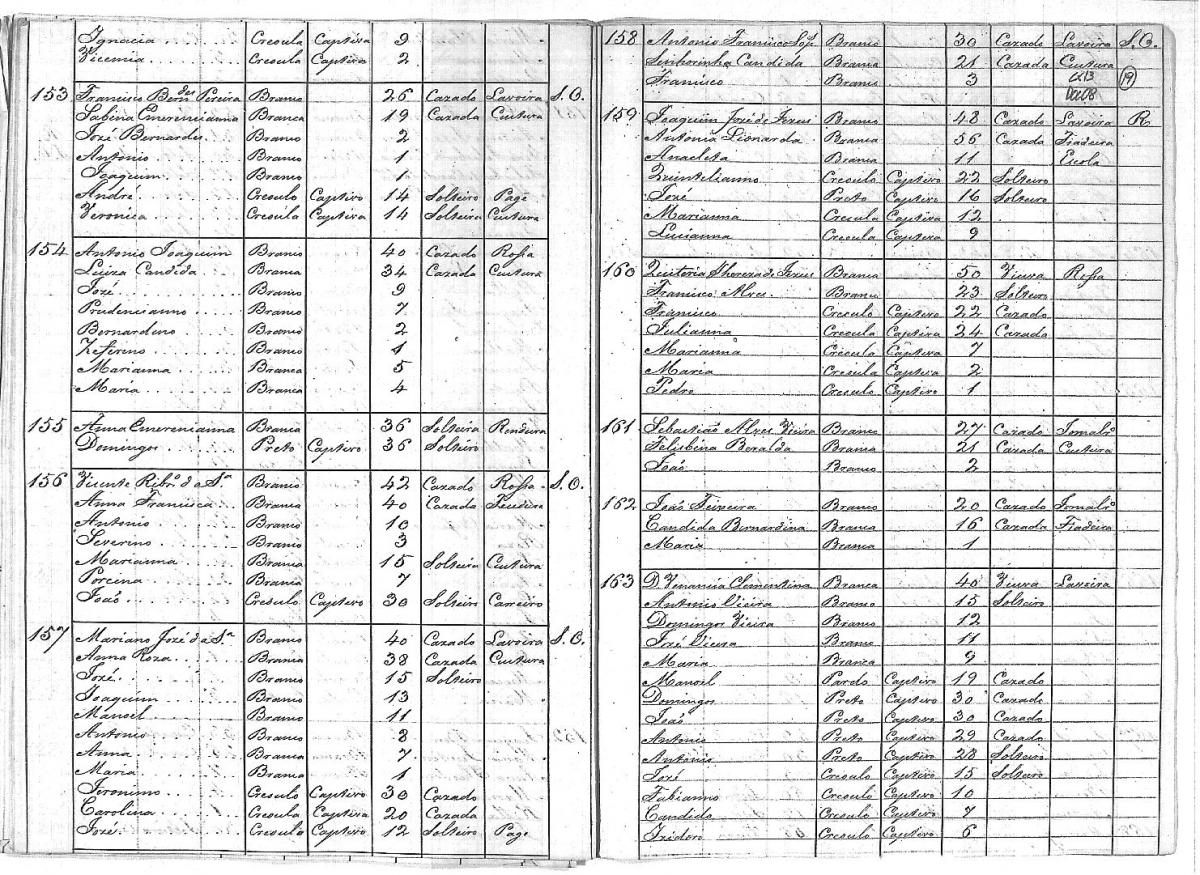 Ignacia Creoula Captiva 9
Vicencia Creoula Captiva 2
153 Francisco Bern.des Pereira Branco 26 Cazado Lavoira S. O.
Sabina Emerencianna Branca 19 Cazada Custura
José Bernardes Branco 2
Antonio Branco 1
Joaquim Branco 1
André Creoulo Captivo 14 Solteiro Page
Veronica Creoula Captiva 14 Solteira Custura
154 Antonio Joaquim Branco 40 Cazado Rossa
Luiza Candida Branca 34 Cazada Custura
José Branco 9
Prudencianno Branco 7
Bernardino Branco 2
Zeferino Branco 1
Marianna Branca 5
Maria Branca 4
155 Anna Emerencianna Branca 36 Solteira Rendeira
Domingos Preto Captivo 36 Solteiro
156 Vicente Ribr.o da S.a Branco 42 Cazado Rossa S. O.
Anna Francisca Branca 40 Cazada
Antonio Branco 10
Severino Branco 3
Marianna Branca 15 Solteira Custura
Porcina Branca 7
João Creoulo Captivo 30 Solteiro Carreiro
157 Mariano José da S.a Branco 40 Cazado Lavoira S. O.
Anna Roza Branca 38 Cazada Custura
José Branco 15 Solteiro
Joaquim Branco 13
Manoel Branco 11
Antonio Branco 8
Anna Branca 7
Maria Branca 1
Jeronimo Creoulo Captivo 30 Cazado
Carolina Creoula Captiva 20 Cazada
José Creoulo Captivo 12 Solteiro Page
158 Antonio Francisco Branco 30 Cazado Lavoira S. O.
Senhorinha Candida Branca 21 Cazada Custura
Francisco Branco 3 19
159 Joaquim José de Jezus Branco 48 Cazado Lavoira R
Antonia Lionarda Branca 56 Cazada Fiadeira
Anacleta Branca 11 Escola
Quintelianno Creoulo Captivo 22 Solteiro
José Preto Captivo 16 Solteiro
Marianna Creoula Captiva 12
Lucianna Creoula Captiva 9
160 Quitoria Thereza de Jezus Branca 50 Viuva Rossa
Francisco Alves Branco 23 Solteiro
Francisco Creoulo Captivo 22 Cazado
Julianna Creoula Captiva 24 Cazada
Marianna Creoula Captiva 7
Maria Creoula Captiva 2
Pedro Creoulo Captivo 1
161 Sebastião Alves Vieira Branco 27 Cazado Jornalr.o
Felisbina Beralda Branca 21 Cazada Custura
João Branco 2
162 João Teixeira Branco 20 Cazado Jornalr.o
Candida Bernardina Branca 16 Cazada Fiadeira
Maria Branca 1
163 D. Venancia Clementina Branca 40 Viuva Lavoira
Antonio Vieira Branco 15 Solteiro
Domingos Vieira Branco 12
José Vieira Branco 11
Maria Branca 9
Manoel Pardo Captivo 19 Cazado
Domingos Preto Captivo 30 Cazado
João Preto Captivo 30 Cazado
Antonio Preto Captivo 29 Cazado
Antonio Preto Captivo 28 Solteiro
José Creoulo Captivo 15 Solteiro
Fabianno Creoulo Captivo 10
Candido Creoulo Captivo 7
Izidoro Creoulo Captivo 6